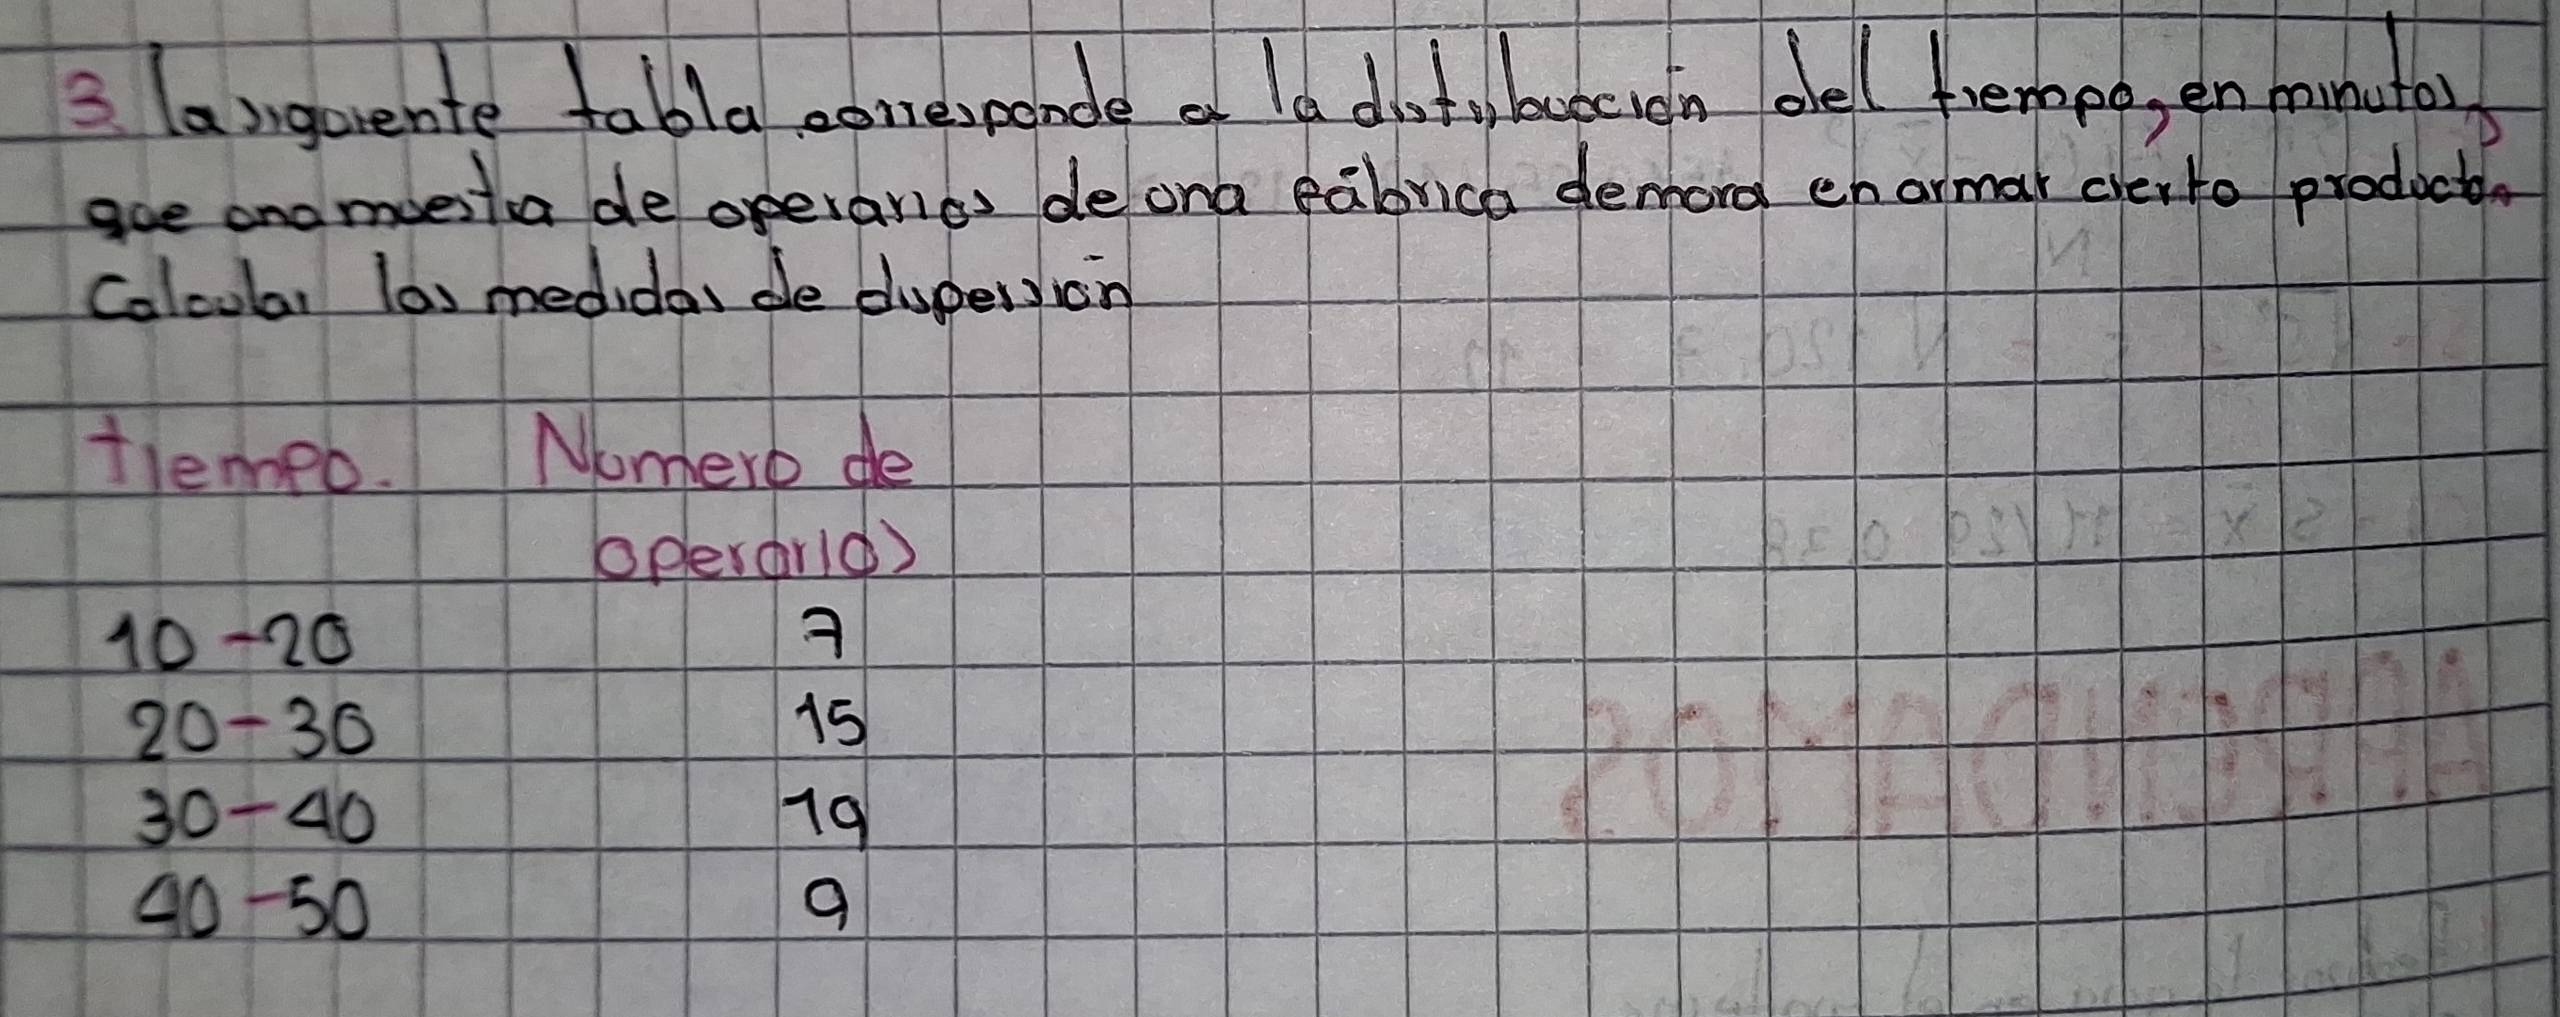 3. la siguiente tabla corresponde a la distribucción del tiempo, en minutos,
que una muestra de operarios de una fábrica demora en armar cierto producto.
Calcular las medidas de dispersión
tiempo. Numero de
operarios
10-20 7
20-30 15
30-40 19
40-50 9